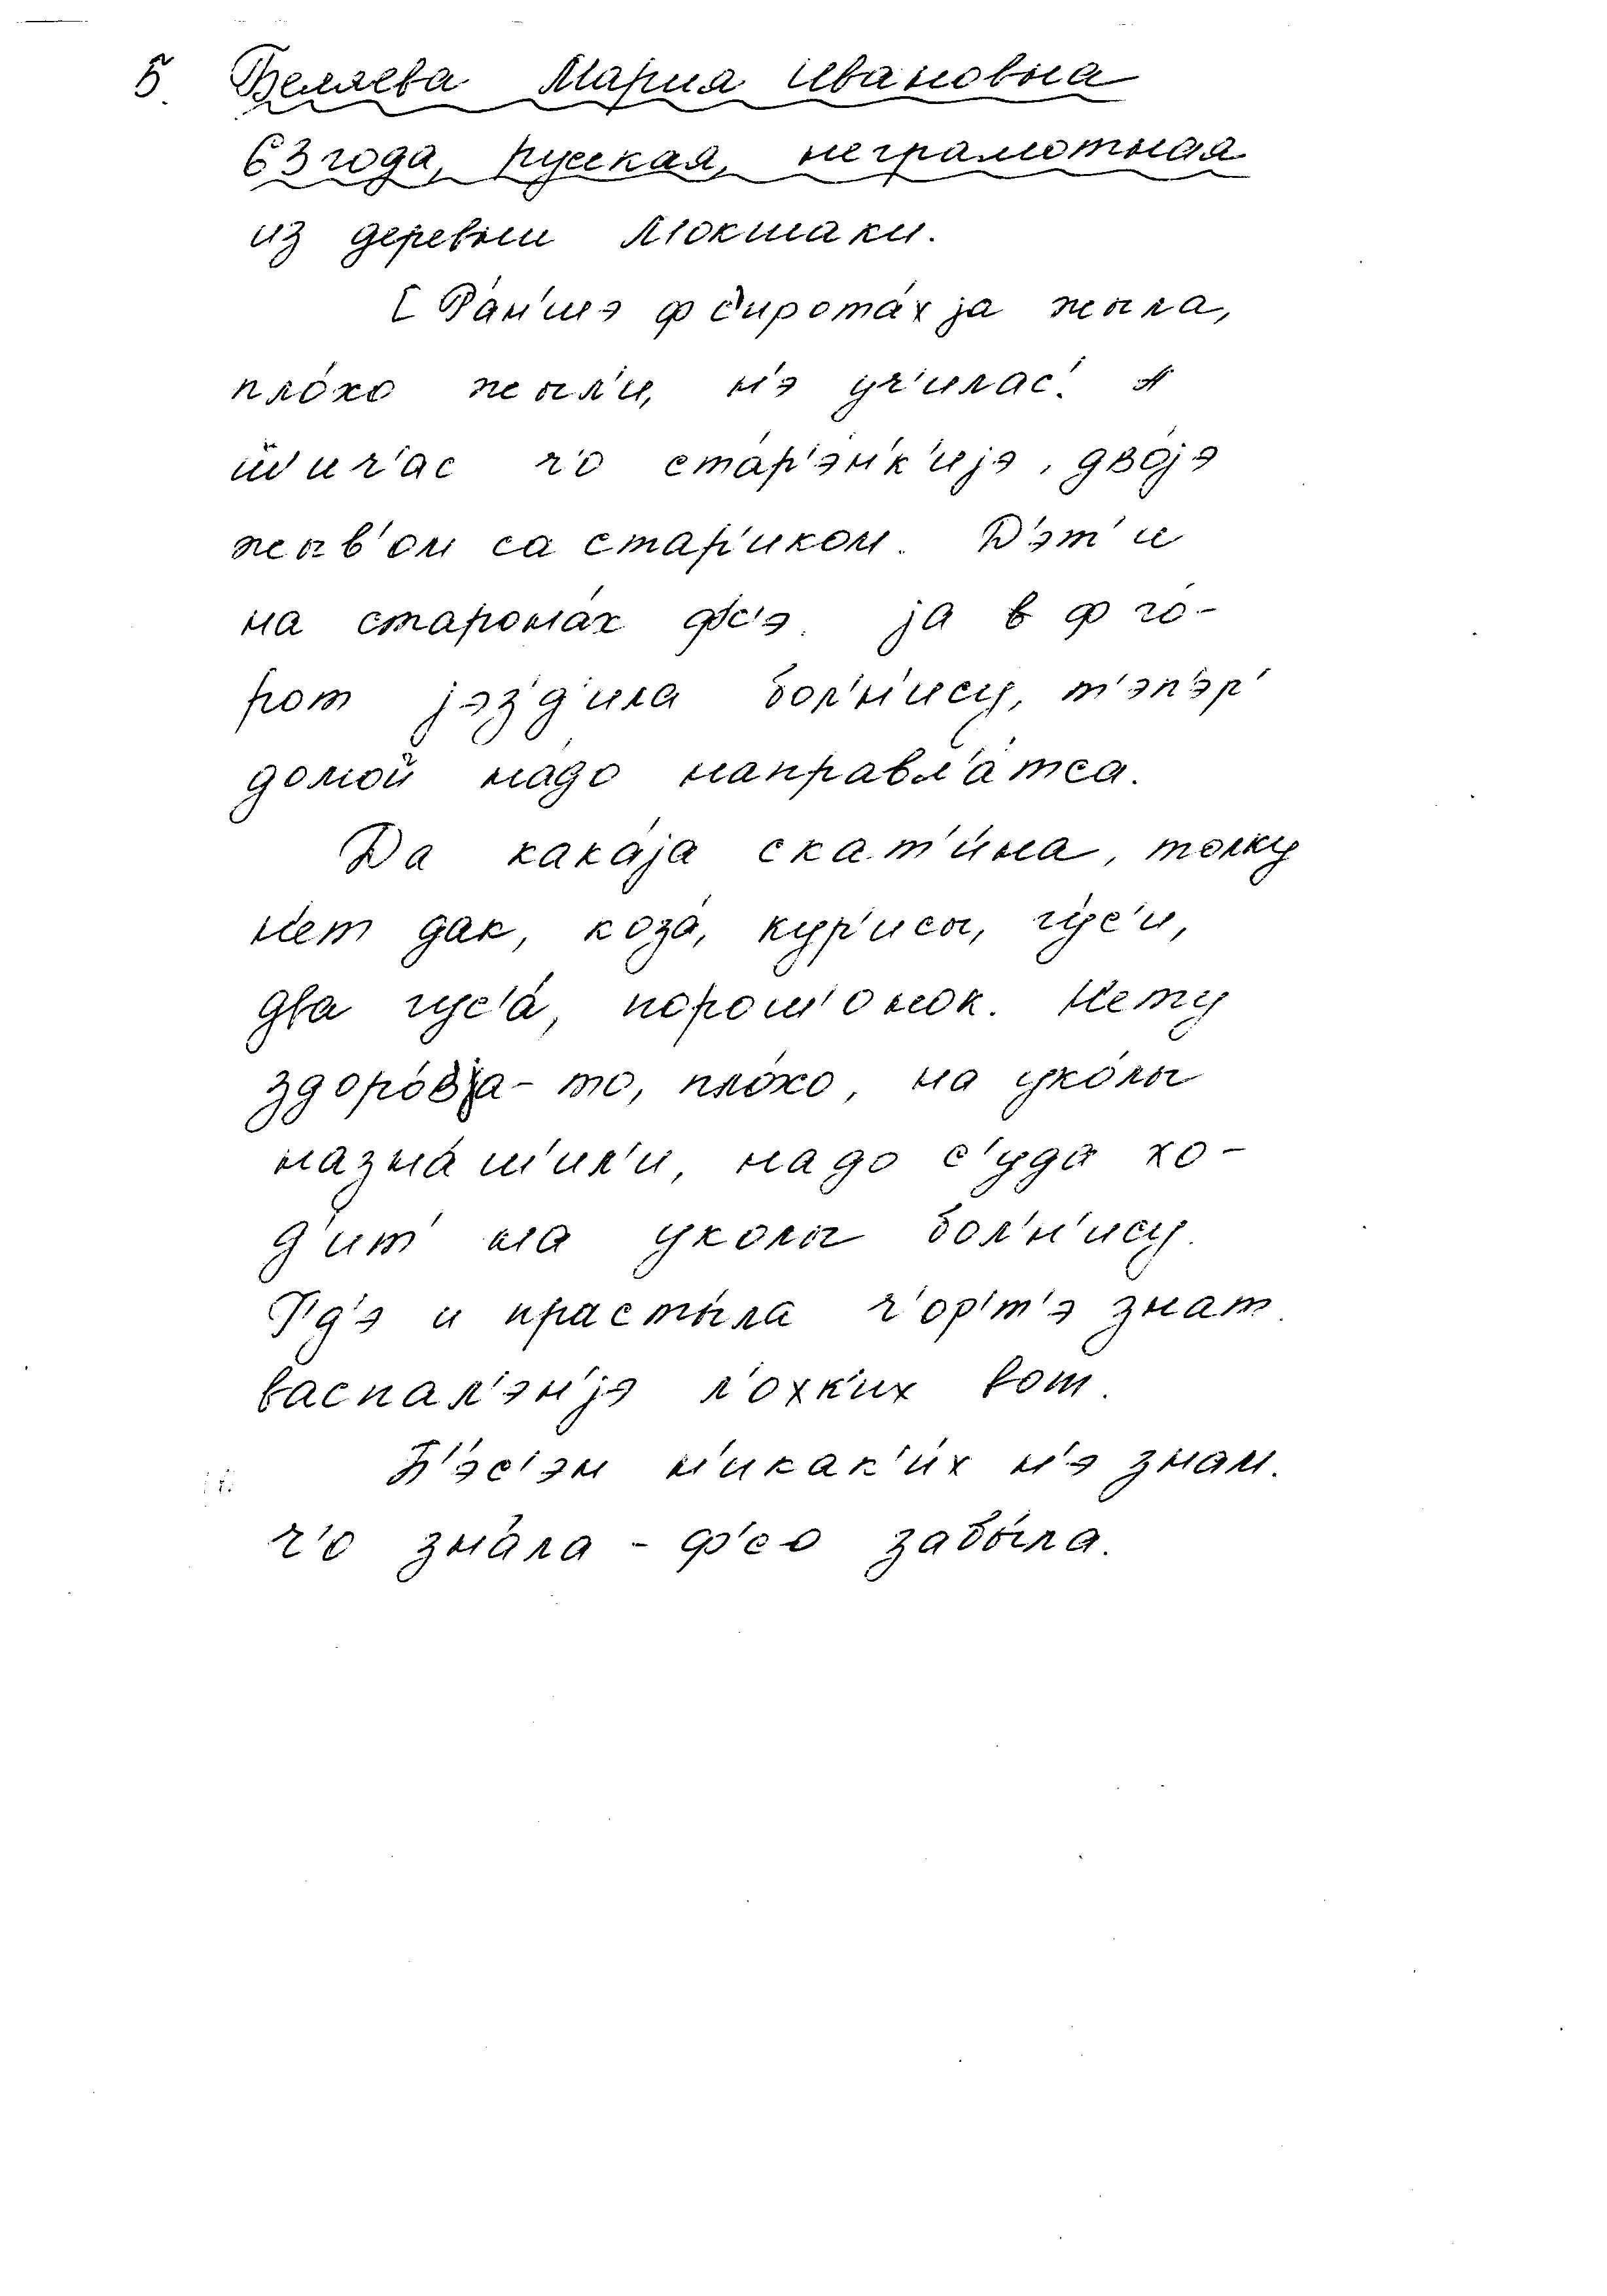 5. Беляева Мария Ивановна
63 года, русская, неграмотная
из деревни Мокшаки.
[ Ра́н'шэ ф с'ирота́х ја жыла,
пло́хо жыл'и, н'э уч'илас'. А
ш'ич'ас ч'о ста́р'эн'к'ијэ, дво́јэ
жыв'ом са стар'иком. Д'эт'и
на старона́х фс'э. ја в ф го́-
рот јэз'д'ила бол'н'ису, т'эп'эр'
домой на́до направл'а́тса.
Да кака́ја скат'и́на, толку
нет дак, коза́, кур'исы, гу́с'и,
два гус'а́, порош'онок. Нету
здоро́вја-то, пло́хо, на уко́лы
назна́ш'ил'и, надо с'уда хо-
д'ит' на уколы бол'н'ису.
Гд'э и прасты́ла ч'ор'т'э знат.
васпал'эн'јэ л'охк'их вот.
П'э́с'эн н'икак'и́х н'э знам.
ч'о зна́ла - ф'со забы́ла.